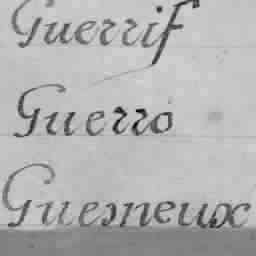 Guerrif
Guerro
Guerneux